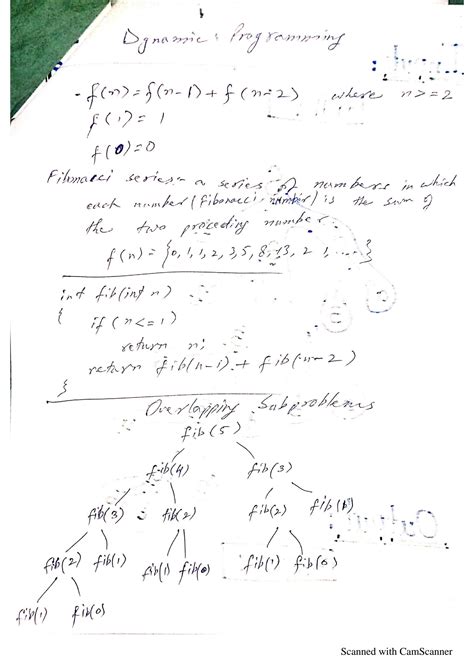 Dynamic : Programming
- f(n) = f(n-1) + f(n-2) where n>=2
f(1) = 1
f(0) = 0
Fibonacci series = a series of numbers in which
each number (Fibonacci number) is the sum of
the two preceding number
f(n) = {0, 1, 1, 2, 3, 5, 8, 13, 2 1, ....}
int fib(int n)
{
if (n<=1)
return n;
return fib(n-1) + fib(n-2)
}
Overlapping Subproblems
fib(5)
fib(4) fib(3)
fib(3) fib(2) fib(2) fib(1)
fib(2) fib(1) fib(1) fib(0) fib(1) fib(0)
fib(1) fib(0)
Scanned with CamScanner